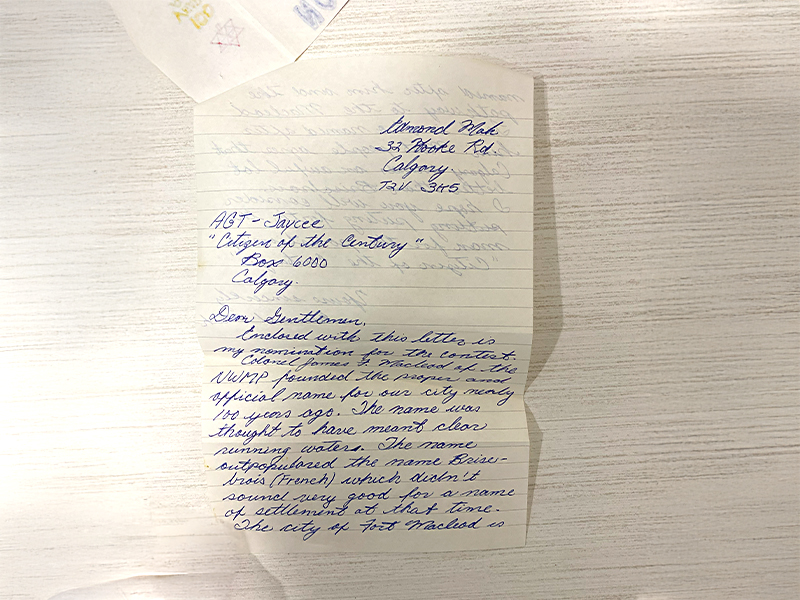 Edmond Mah
32 Hooke Rd.
Calgory.
T2V 3H5
AGT-Jaycee
"Citizen of the Century"
Box 6000
Calgory.
Dear Gentlemen,
Enclosed with this letter is
my nomination for the contest.
Colonel James F. Macleod of the
NWMP founded the proper and
official name for our city nearly
100 years ago. The name was
thought to have meant clear
running waters. The name
outpopulared the name Brise-
brois (French) which didn't
sound very good for a name
of settlement at that time.
The city of Fort Macleod is